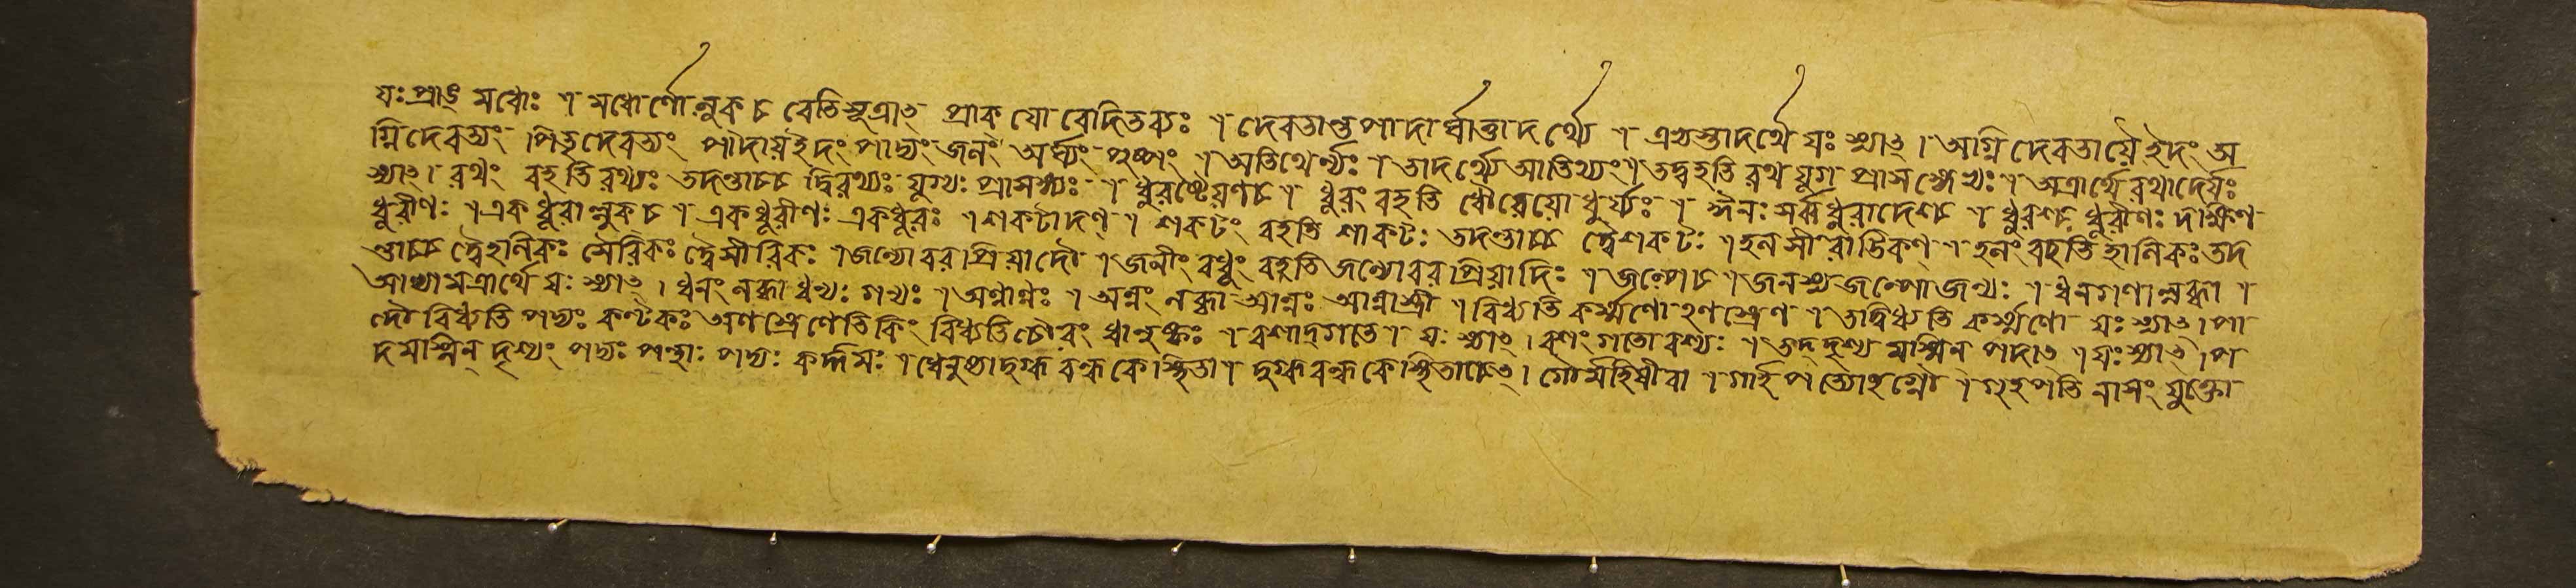 যঃ প্রাঙ্ মধোঃ । মধোর্ণো লুক্ চ বেতি সূত্রাৎ প্রাক্ যো বেদিতব্যঃ । দেবতান্তপাদার্ঘাত্তাদর্থ্যে । এভ্যস্তাদর্থে যঃ স্যাৎ । অগ্নিদেবতায়ৈ ইদং অ
গ্নিদেবত্যং পিতৃদেবত্যং পাদায় ইদং পাদ্যং জলং অর্ঘ্যং পুষ্পং । অতিথের্ণ্যঃ । তাদর্থ্যে আতিথ্যং । তদ্বহতি রথযুগপ্রাসঙ্গেভ্যঃ । অত্রার্থে রথাদের্যঃ
স্যাৎ । রথং বহতি রথ্যঃ তদন্তাচ্চ দ্বিরথ্যঃ যুগ্যঃ প্রাসঙ্গ্যঃ । ধুরষ্ঠেয়ণ্ চ । ধুরং বহতি ধৌরেয়ো ধুর্য্যঃ । ঈনঃ সর্ব্বধুরাদেশ্চ । ধুরশ্চ ধুরীণঃ দক্ষিণ
ধুরীণঃ । একধুরাল্লুক্ চ । একধুরীণঃ একধুরঃ । শকটাদণ্ । শকটং বহতি শাকটঃ তদন্তাচ্চ দ্বৈশকটঃ । হলসীরাট্ঠিকণ্ । হলং বহতি হালিকঃ তদ
ন্তাচ্চ দ্বৈহালিকঃ সৈরিকঃ দ্বৈসীরিকঃ । জন্যো বরপ্রিয়াদৌ । জনীং বধুং বহতি জন্যো বরপ্রিয়াদিঃ । জল্পে চ । জনস্য জল্পো জন্যঃ । ধনগণাল্লব্ধা ।
আভ্যামত্রার্থে যঃ স্যাৎ । ধনং লব্ধা ধন্যঃ গণ্যঃ । অন্নাণ্ণঃ । অন্নং লব্ধা আন্নঃ আন্নাস্ত্রী । বিধ্যতি কর্ম্মণোঽণস্ত্রেণ । তদ্বিধ্যতি কর্ম্মণো যঃ স্যাৎ । পা
দৌ বিধ্যতি পদ্যঃ কণ্টকঃ অণস্ত্রেণেতি কিং বিধ্যতি চৌরং ধানুষ্কঃ । বশাদ্গতে । যঃ স্যাৎ । বশং গতো বশ্যঃ । তদ্দৃশ্যমস্মিন্ পদাৎ । যঃ স্যাৎ । প
দমস্মিন্ দৃশ্যং পদ্যঃ পন্থাঃ পদ্যঃ কর্দ্দমঃ । ধেনুষ্যা দুগ্ধবন্ধকে স্থিতা । দুগ্ধবন্ধকে স্থিতা চেৎ । গৌর্মহিষী বা । গার্হপত্যোঽগ্নৌ । গৃহপতিনা সংযুক্তো